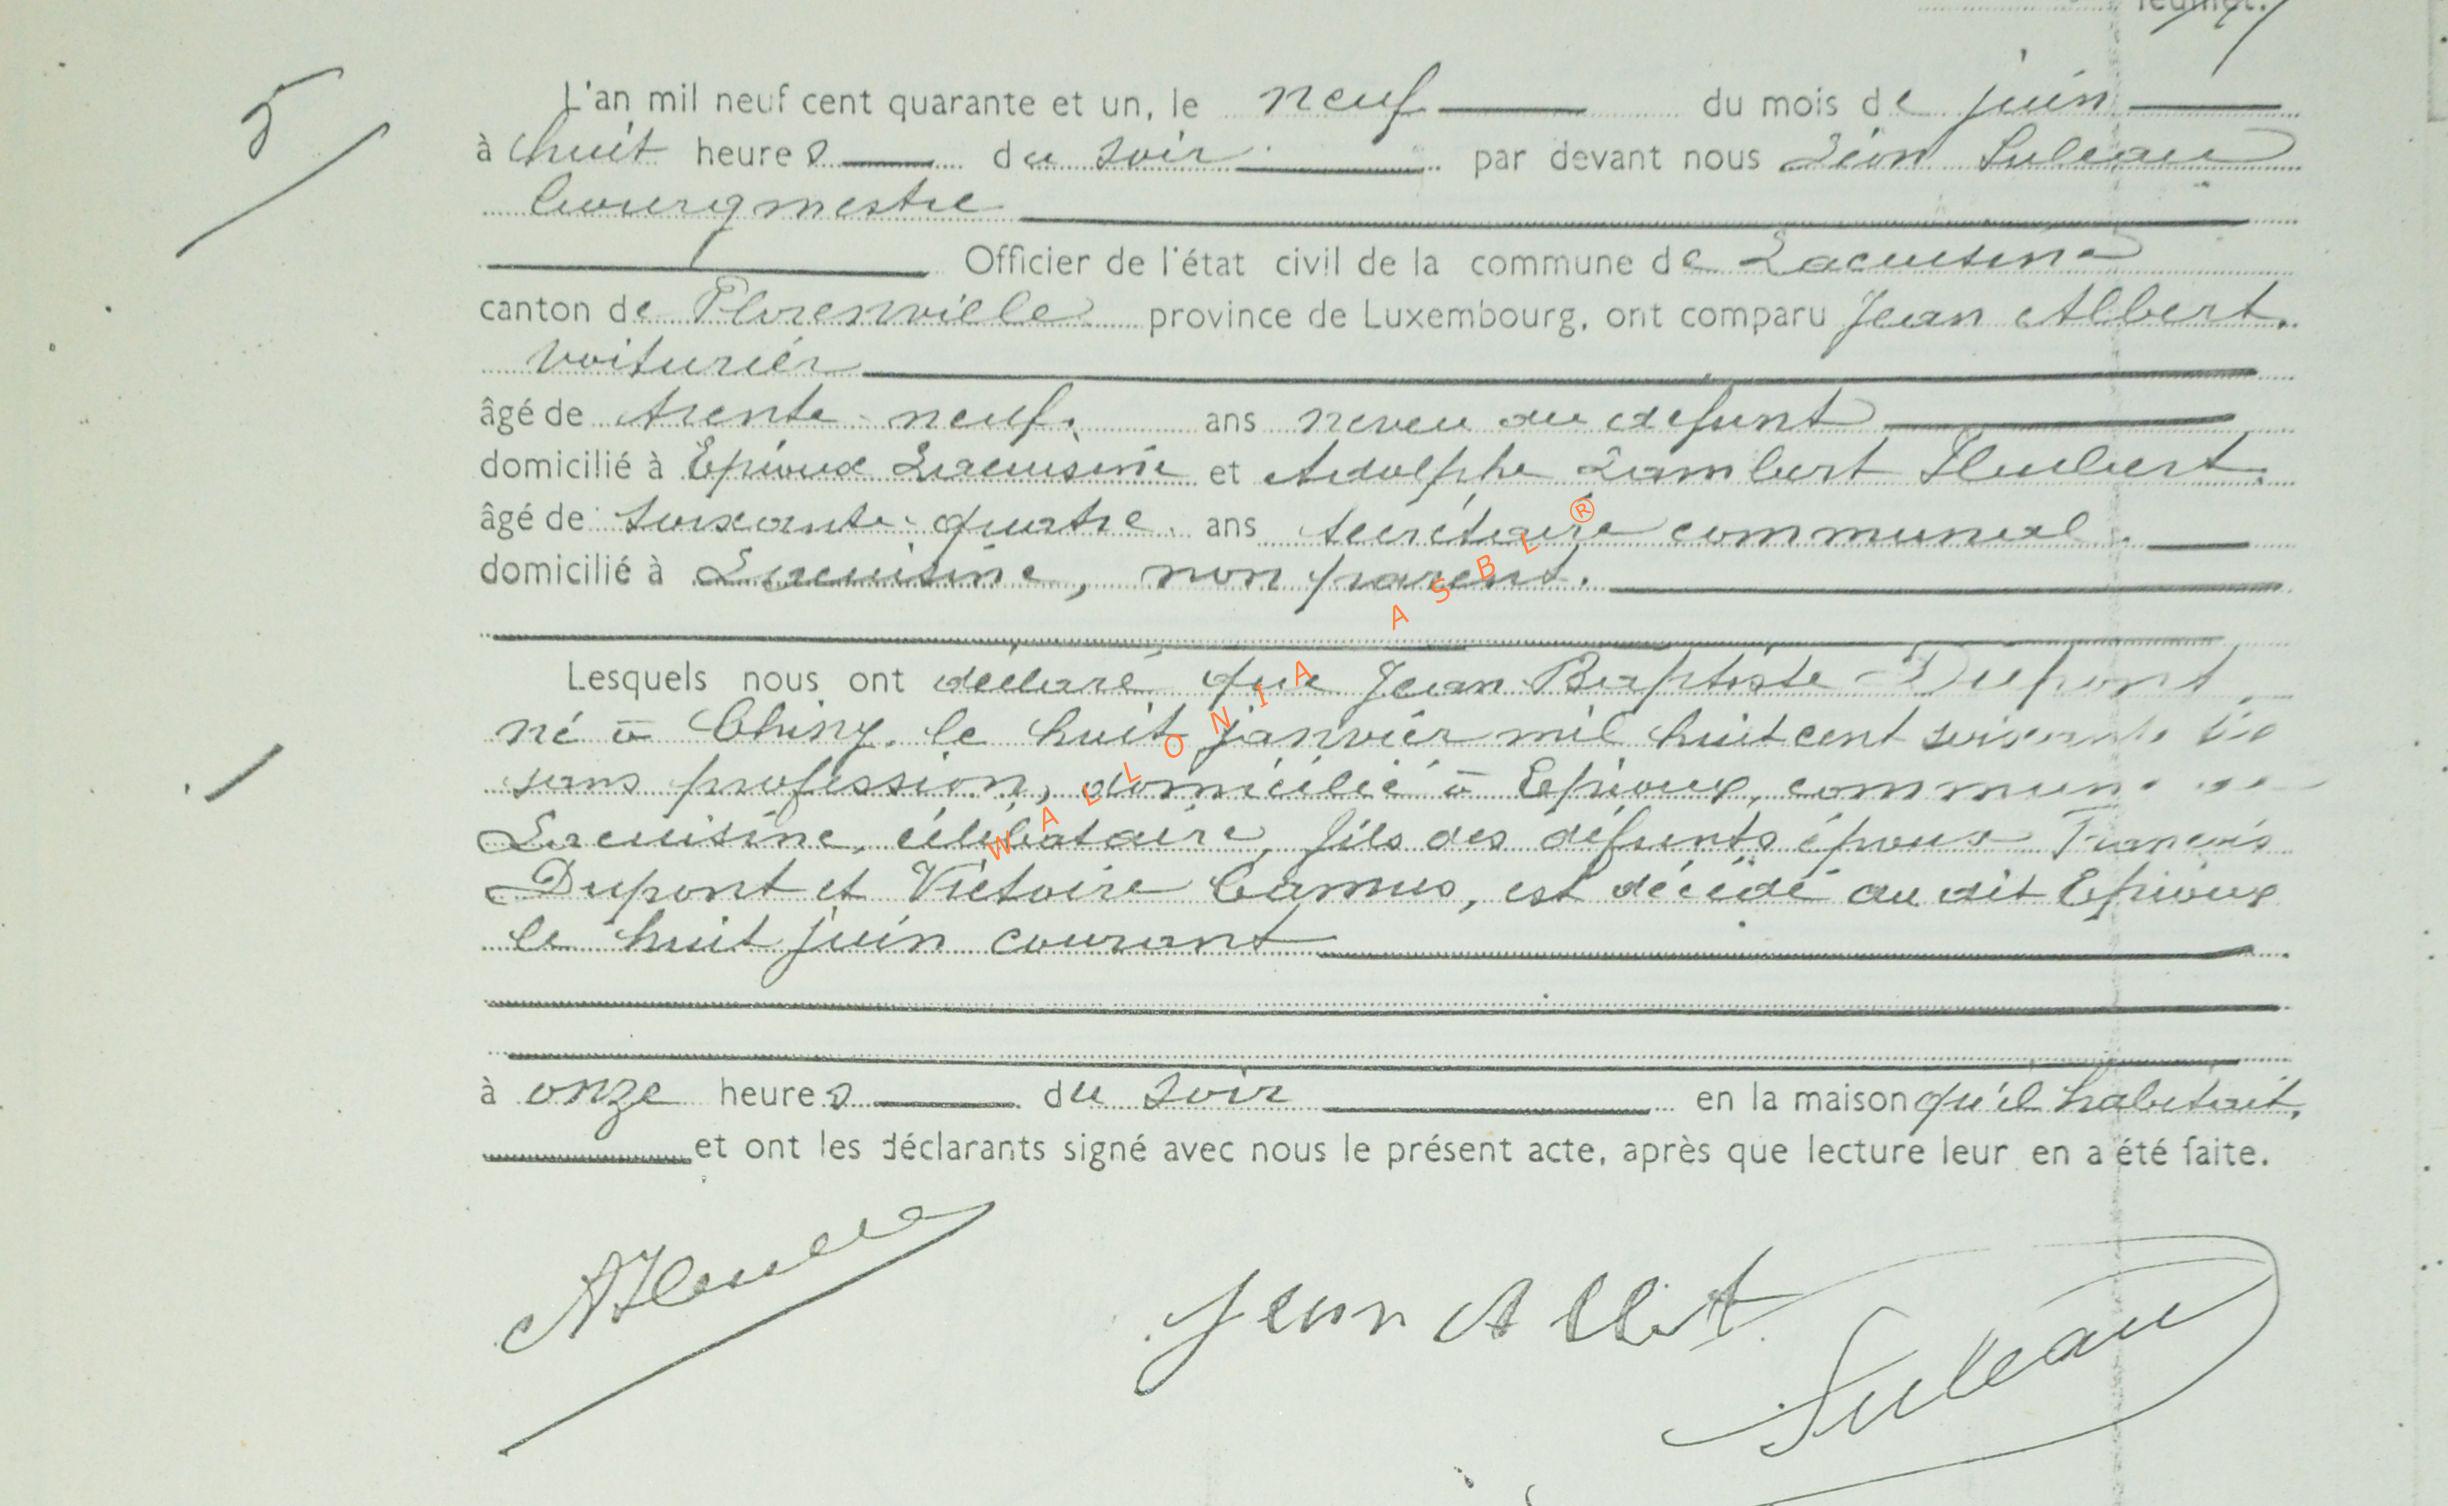 feuillet.
5
L'an mil neuf cent quarante et un, le neuf du mois de juin
à huit heures du soir par devant nous Léon Suleau
bourgmestre
Officier de l'état civil de la commune de Lacuisine
canton de Florenville province de Luxembourg, ont comparu Jean Albert.
voiturier
âgé de trente-neuf. ans neveu du défunt
domicilié à Epioux Lacuisine et Adolphe Lambert Hubert.
âgé de soixante-quatre. ans secrétaire communal.
domicilié à Lacuisine, non parent.
Lesquels nous ont déclaré que Jean Baptiste Dupont,
né à Chiny, le huit janvier mil huit cent soixante
sans profession, domicilié à Epioux, commune de
Lacuisine, célibataire, fils des défunts époux François
Dupont et Victoire Camus, est décédé au dit Epioux
le huit juin courant
à onze heures du soir en la maison qu'il habitait,
et ont les déclarants signé avec nous le présent acte, après que lecture leur en a été faite.
Jean Albert
Suleau
WALLONIA ASBL ®